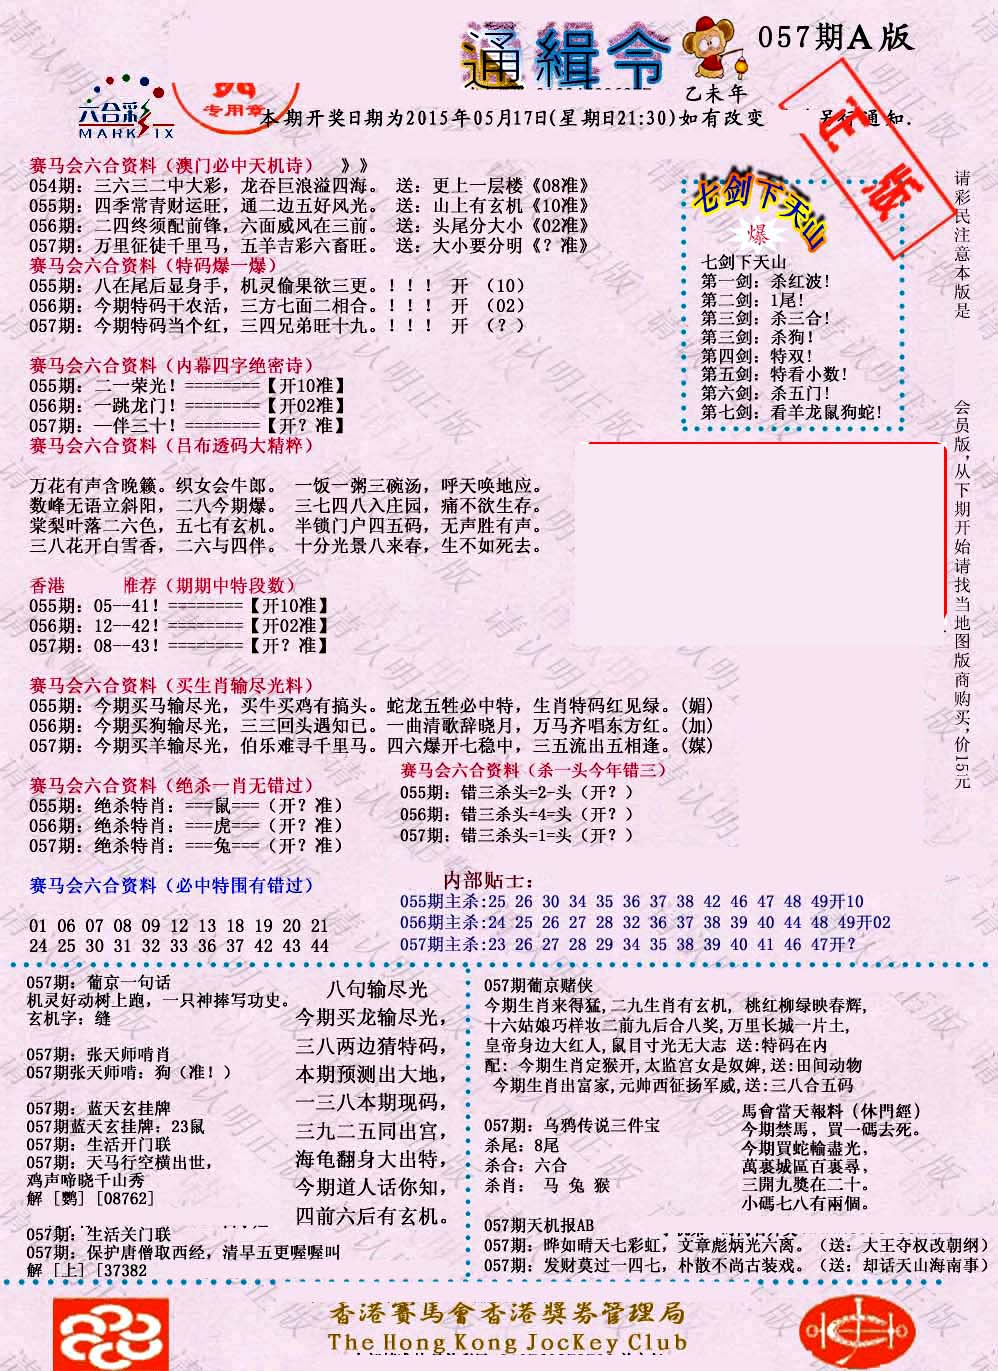 通緝令
057期A版
乙未年
六合彩
MARK SIX
专用章
本期开奖日期为2015年05月17日(星期日21:30)如有改变
另行通知.
赛马会六合资料（澳门必中天机诗） 》》
054期: 三六三二中大彩, 龙吞巨浪溢四海。 送: 更上一层楼《08准》
055期: 四季常青财运旺, 通二边五好风光。 送: 山上有玄机《10准》
056期: 二四终须配前锋, 六面威风在三前。 送: 头尾分大小《02准》
057期: 万里征徒千里马, 五羊吉彩六畜旺。 送: 大小要分明《? 准》
赛马会六合资料（特码爆一爆）
055期: 八在尾后显身手, 机灵偷果欲三更。!!! 开 （10）
056期: 今期特码干农活, 三方七面二相合。!!! 开 （02）
057期: 今期特码当个红, 三四兄弟旺十九。!!! 开 （?）
赛马会六合资料（内幕四字绝密诗）
055期: 二一荣光! ========【开10准】
056期: 一跳龙门! ========【开02准】
057期: 一伴三十! ========【开? 准】
七剑下天山
爆
七剑下天山
第一剑: 杀红波!
第二剑: 1尾!
第三剑: 杀三合!
第三剑: 杀狗!
第四剑: 特双!
第五剑: 特看小数!
第六剑: 杀五门!
第七剑: 看羊龙鼠狗蛇!
请彩民注意本版是
会员版,从下期开始请找当地图版商购买,价15元
赛马会六合资料（吕布透码大精粹）
万花有声含晚籁。织女会牛郎。 一饭一粥三碗汤, 呼天唤地应。
数峰无语立斜阳, 二八今期爆。 三七四八入庄园, 痛不欲生存。
棠梨叶落二六色, 五七有玄机。 半锁门户四五码, 无声胜有声。
三八花开白雪香, 二六与四伴。 十分光景八来春, 生不如死去。
香港 推荐（期期中特段数）
055期: 05--41! ========【开10准】
056期: 12--42! ========【开02准】
057期: 08--43! ========【开? 准】
赛马会六合资料（买生肖输尽光料）
055期: 今期买马输尽光, 买牛买鸡有搞头。蛇龙五牲必中特, 生肖特码红见绿。(媚)
056期: 今期买狗输尽光, 三三回头遇知已。一曲清歌辞晓月, 万马齐唱东方红。(加)
057期: 今期买羊输尽光, 伯乐难寻千里马。四六爆开七稳中, 三五流出五相逢。(媒)
赛马会六合资料（绝杀一肖无错过）
055期: 绝杀特肖: ===鼠===（开? 准）
056期: 绝杀特肖: ===虎===（开? 准）
057期: 绝杀特肖: ===兔===（开? 准）
赛马会六合资料（杀一头今年错三）
055期: 错三杀头=2-头（开? ）
056期: 错三杀头=4=头（开? ）
057期: 错三杀头=1=头（开? ）
赛马会六合资料（必中特围有错过）
01 06 07 08 09 12 13 18 19 20 21
24 25 30 31 32 33 36 37 42 43 44
内部贴士:
055期主杀:25 26 30 34 35 36 37 38 42 46 47 48 49开10
056期主杀:24 25 26 27 28 32 36 37 38 39 40 44 48 49开02
057期主杀:23 26 27 28 29 34 35 38 39 40 41 46 47开?
057期: 葡京一句话
机灵好动树上跑, 一只神捧写功史。
玄机字: 缝
057期: 张天师啃肖
057期张天师啃: 狗（准! ）
057期: 蓝天玄挂牌
057期蓝天玄挂牌: 23鼠
057期: 生活开门联
057期: 天马行空横出世,
鸡声啼晓千山秀
解 [鹦] [08762]
057期: 生活关门联
057期: 保护唐僧取西经, 清早五更喔喔叫
解 [上] [37382
八句输尽光
今期买龙输尽光,
三八两边猜特码,
本期预测出大地,
一三八本期现码,
三九二五同出宫,
海龟翻身大出特,
今期道人话你知,
四前六后有玄机。
057期葡京赌侠
今期生肖来得猛, 二九生肖有玄机, 桃红柳绿映春辉,
十六姑娘巧样妆二前九后合八奖, 万里长城一片土,
皇帝身边大红人, 鼠目寸光无大志 送:特码在内
配: 今期生肖定猴开, 太监宫女是奴婢, 送:田间动物
今期生肖出富家, 元帅西征扬军威, 送:三八合五码
057期: 乌鸦传说三件宝
杀尾: 8尾
杀合: 六合
杀肖: 马 兔 猴
馬會當天報料（休門經）
今期禁馬, 買一碼去死。
今期買蛇輸盡光,
萬裏城區百裏尋,
三開九獎在二十。
小碼七八有兩個。
057期天机报AB
057期: 晔如晴天七彩虹, 文章彪炳光六离。（送: 大王夺权改朝纲）
057期: 发财莫过一四七, 朴散不尚古装戏。（送: 却话天山海南事）
香港賽馬會香港獎券管理局
The Hong Kong JocKey Club